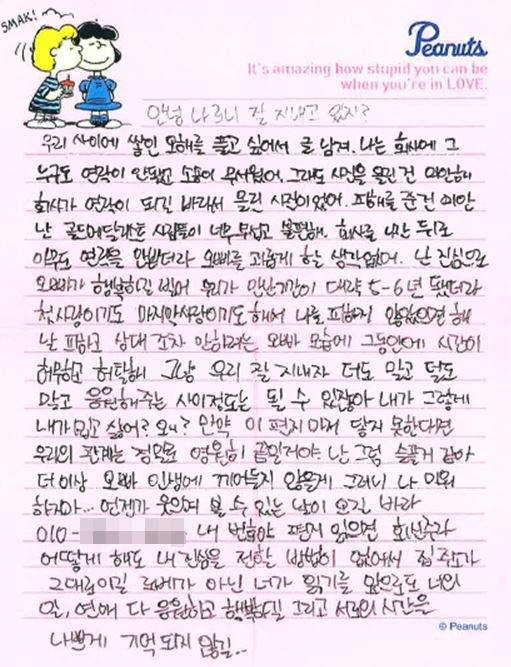 SMAK!
Peanuts
It's amazing how stupid you can be
when you're in LOVE.
안녕 나르니 잘 지내고 있지?
우리 사이에 쌓인 오해를 풀고 싶어서 글 남겨. 나는 회사에 그
누구도 연락이 안됐고 소송이 무서웠어. 그래도 사진을 올린 건 미안해
회사가 연락이 되길 바라서 올린 사진이었어. 피해를 준건 미안
난 골드메달리스트 사람들이 너무 무섭고 불편해. 회사를 나간 뒤로
아무도 연락을 안받더라 오빠를 괴롭게 할 생각없어. 난 진심으로
오빠가 행복하길 빌어 우리가 만난기간이 대략 5-6년 됐더라
첫사랑이기도 마지막사랑이기도 해서 나를 피하지 않았으면 해
난 피하고 상대 조차 안하려는 오빠 모습에 그동안에 시간이
허무하고 허탈해 그냥 우리 잘 지내자 더도 말고 덜도
말고 응원해주는 사이정도는 될 수 있잖아 내가 그렇게
내가 밉고 싫어? 왜? 만약 이 편지 마저 닿지 못한다면
우리의 관계는 정말로 영원히 끝일거야. 난 그럼 슬플거 같아
더이상 오빠 인생에 끼어들지 않을게 그러니 나 미워
하지마... 언젠가 웃으며 볼 수 있는 날이 오길 바라
010- 내 번호야 편지 읽으면 회신주라
어떻게 해도 내 진심을 전할 방법이 없어서 집 주소가
그대로이길 로버가 아닌 너가 읽기를 앞으로도 너의
일, 연애 다 응원하고 행복하길 그리고 서로의 시간은
나쁘게 기억되지 않길..
© Peanuts